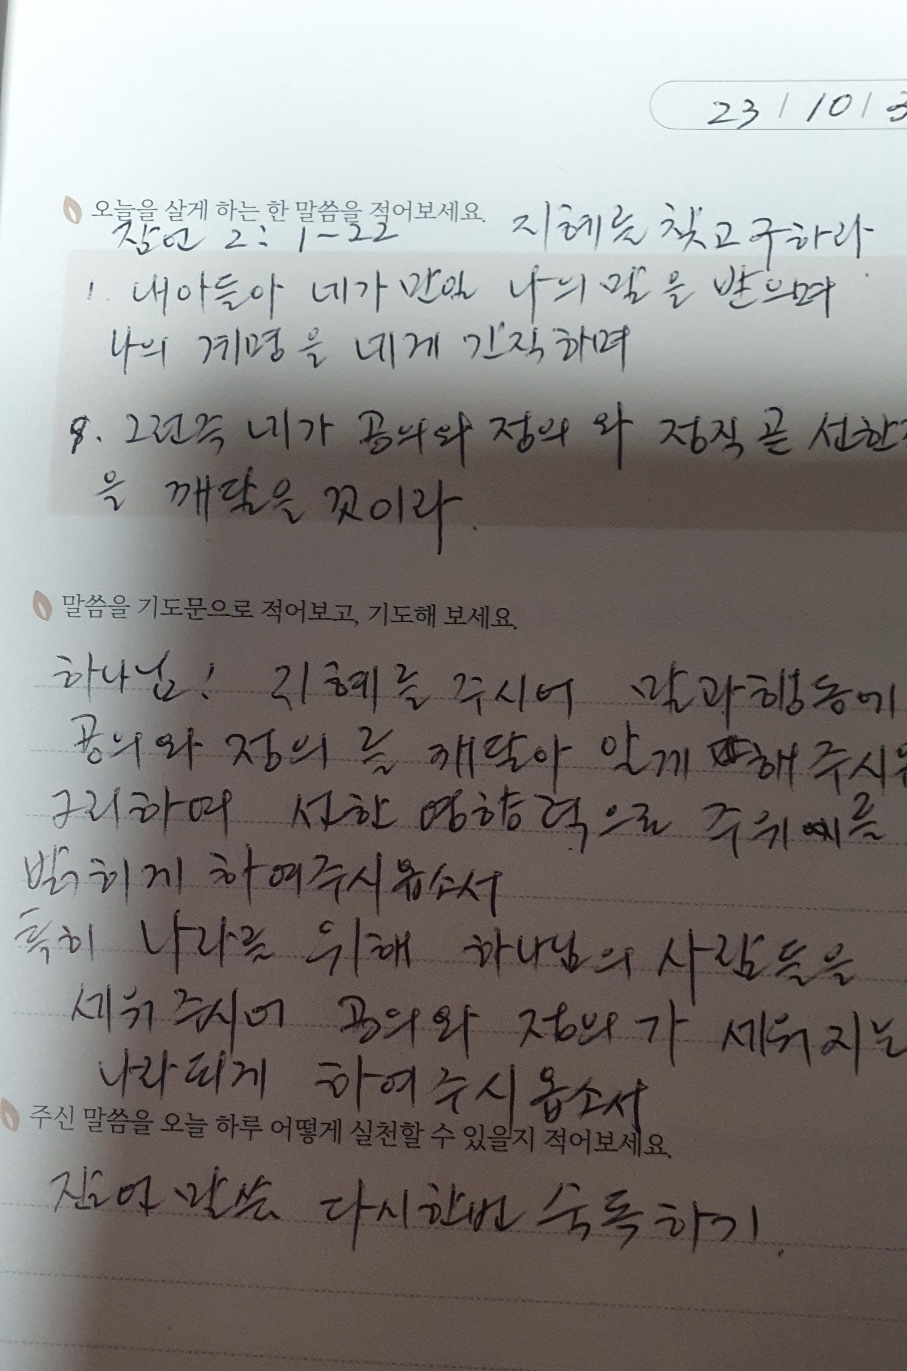 23 / 10 / 3
오늘을 살게 하는 한 말씀을 적어보세요.
잠언 2: 1-22 지혜를 찾고 구하라
1. 내아들아 네가 만일 나의 말을 받으며
나의 계명을 네게 간직하며
9. 그런즉 네가 공의와 정의와 정직 곧 선한
을 깨달을 것이라.
말씀을 기도문으로 적어보고, 기도해 보세요.
하나님! 지혜를 주시어 말과행동에
공의와 정의를 깨달아 알게 해 주시옵
그리하며 선한 영향력으로 주위를
밝히게 하여주시옵소서
특히 나라를 위해 하나님의 사람들을
세워주시어 공의와 정의가 세워지는
나라되게 하여주시옵소서
주신 말씀을 오늘 하루 어떻게 실천할 수 있을지 적어보세요.
잠언 말씀 다시한번 숙독하기.